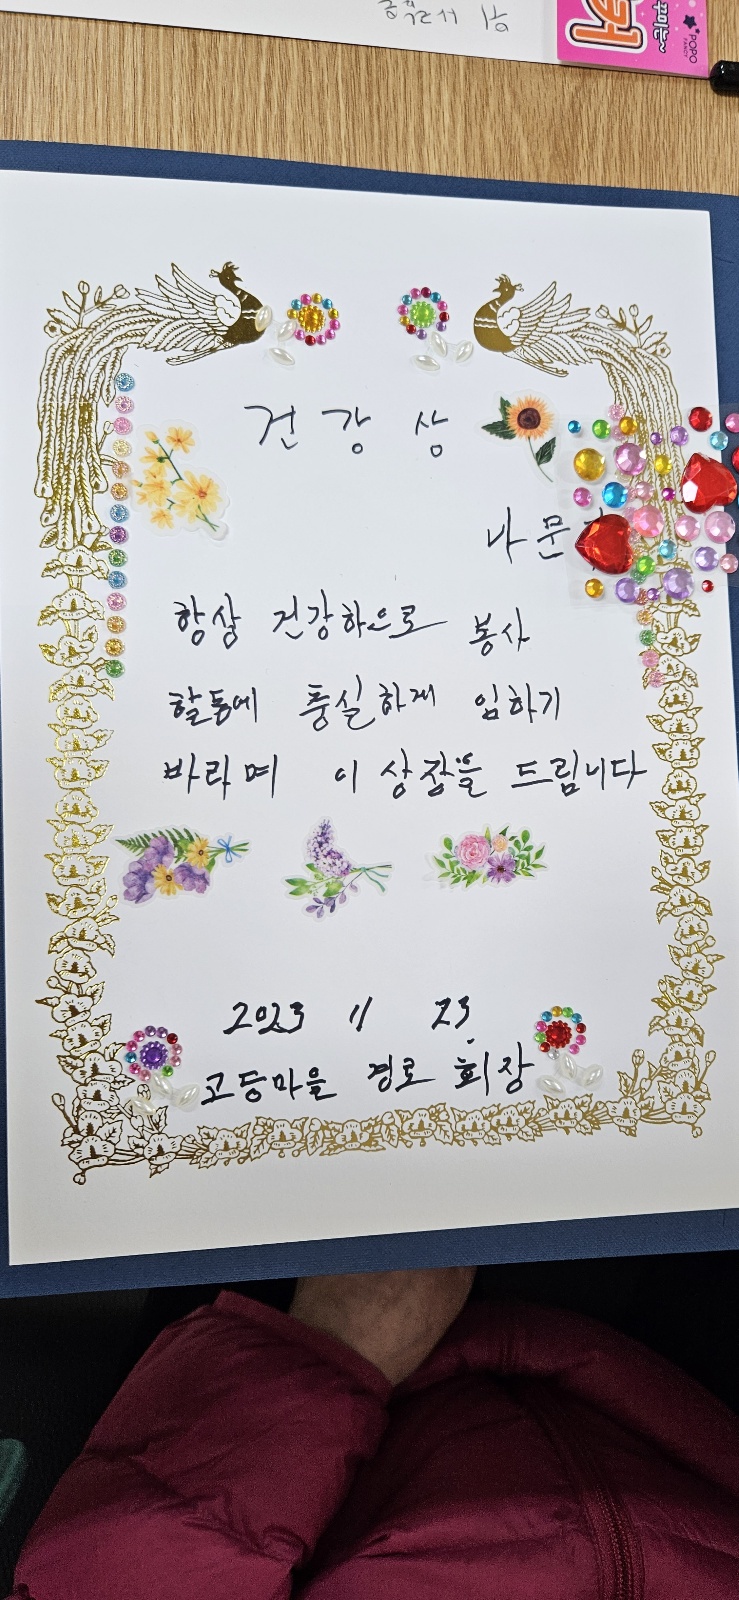 건강상
나문
항상 건강하으로 봉사
활동에 충실하게 임하기
바라며 이 상장을 드립니다
2023 11 23
고등마을 경로 회장
POPO
FANCY